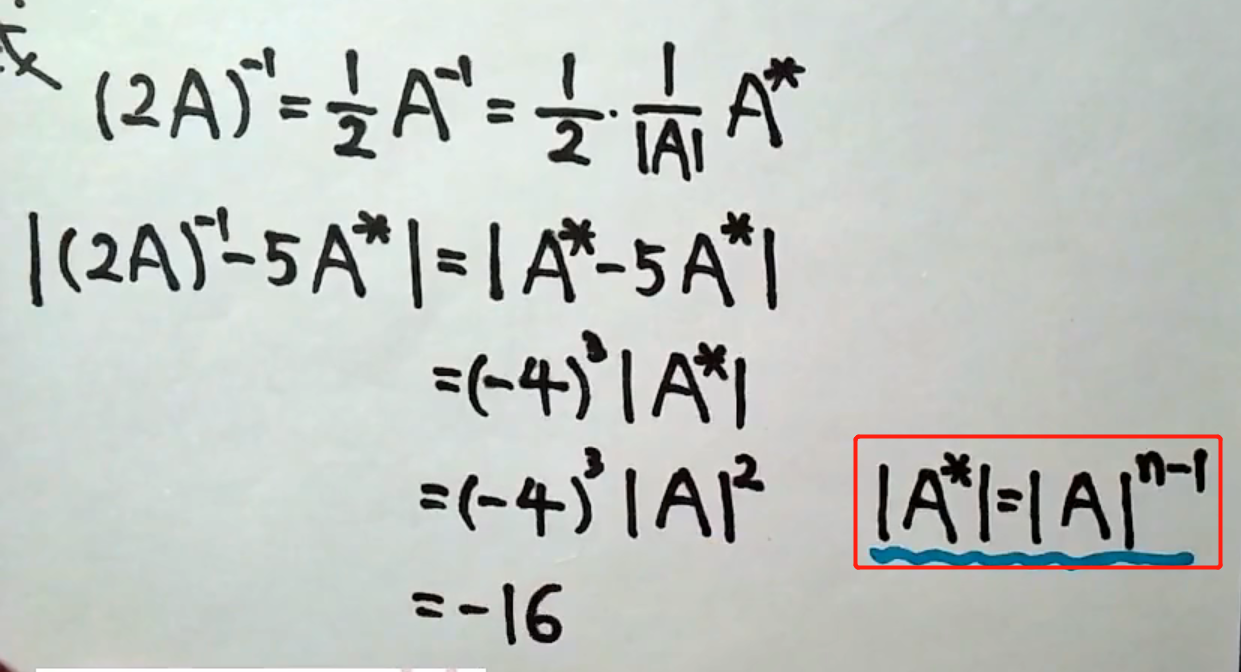 (2A)⁻¹ = 1/2 A⁻¹ = 1/2 · 1/|A| A*
|(2A)⁻¹ - 5A*| = |A* - 5A*|
= (-4)³ |A*|
= (-4)³ |A|²
|A*| = |A|ⁿ⁻¹
= -16